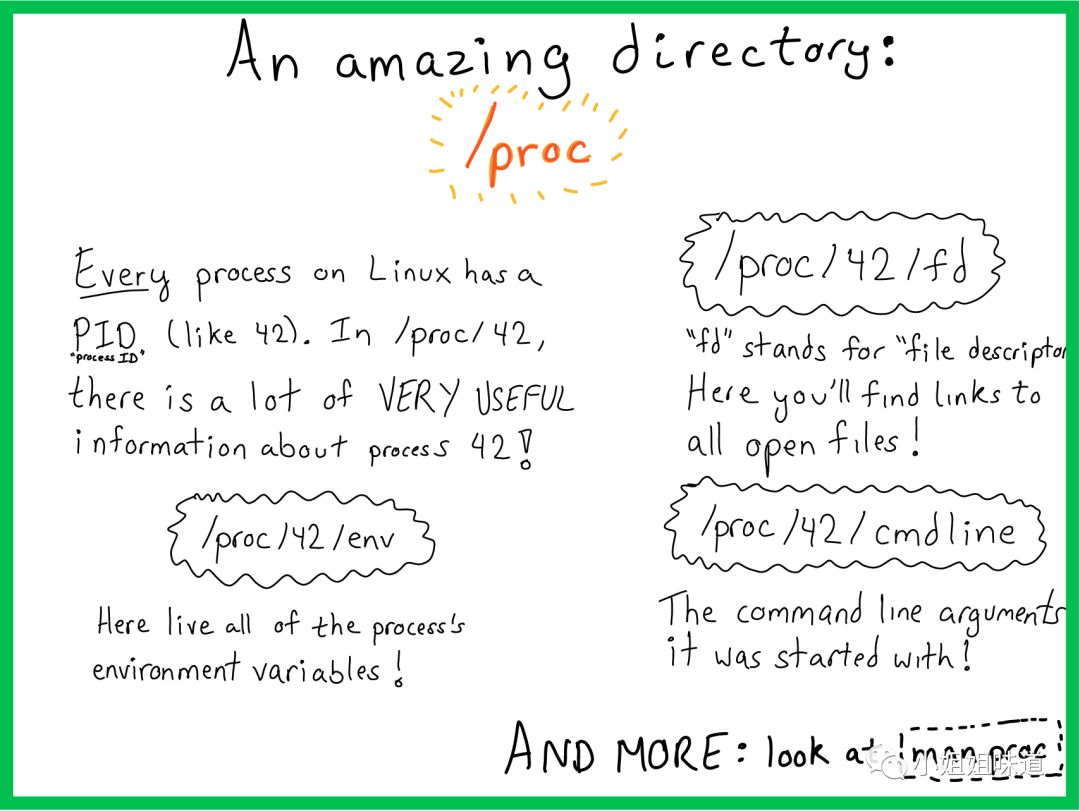 An amazing directory:
/proc
Every process on Linux has a
PID (like 42). In /proc/42,
"process ID"
there is a lot of VERY USEFUL
information about process 42!
/proc/42/env
Here live all of the process's
environment variables!
/proc/42/fd
"fd" stands for "file descriptor
Here you'll find links to
all open files!
/proc/42/cmdline
The command line arguments
it was started with!
AND MORE: look at man proc
小姐姐味道